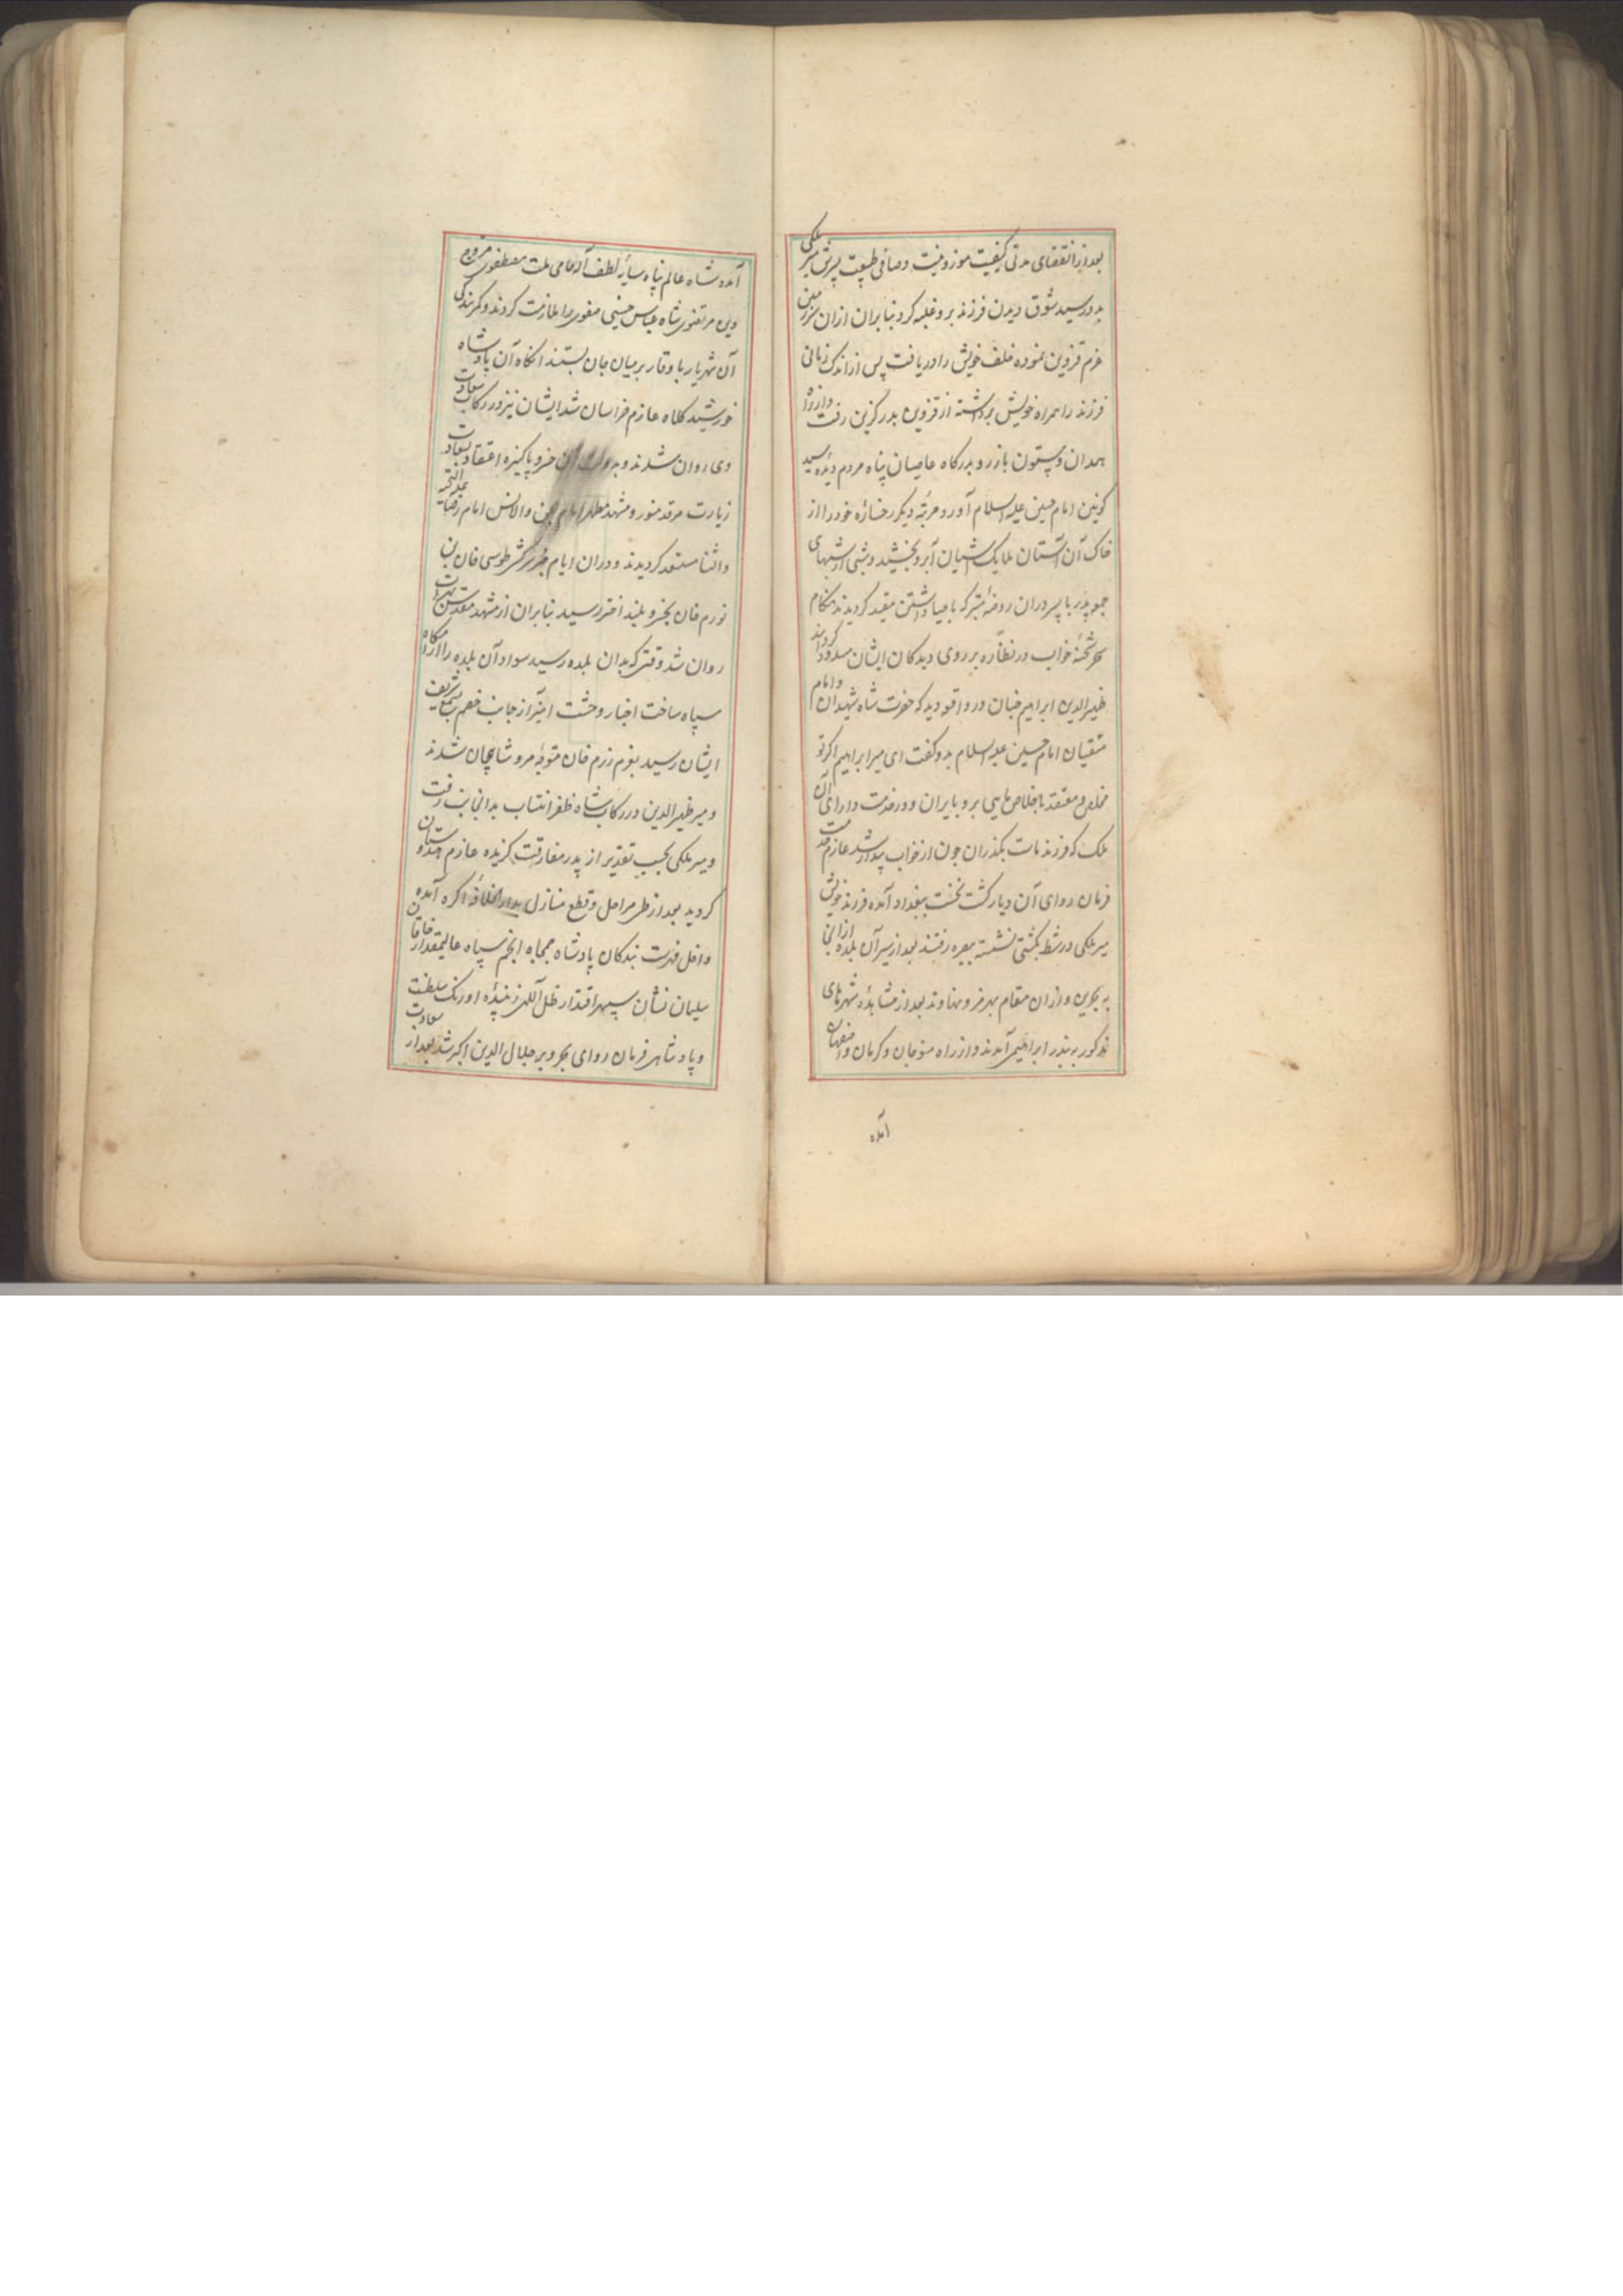 بعد از انقضای مدتی کیفیت موزونیت و صافی طبیعت پسرش میر ملکی
بدو رسید شوق دیدن فرزند برو غلبه کرد بنابران ازان سرزمین
عزم قزوین نموده خلف خویش را دریافت پس از اندک زمانی
فرزند را همراه خویش برداشته از قزوین بدرگزین رفت و از راه
همدان و بیستون باز رو بدرگاه عاصیان پناه مردم دیده سید
کونین امام حسین علیه السلام آورد مرتبه دیگر رخساره خود را از
خاک آن آستان ملایک آشیان آبرو بخشید و شبی از شبهای
جمعه پدر با پسر دران روضه متبرکه باحیا داشتن مقید گردیدند هنگام
سحر شحنه خواب در نظاره بر روی دیدگان ایشان مسدود گردانید
ظهیرالدین ابراهیم چنان در واقعه دید که حضرت شاه شهیدان و امام
متقیان امام حسین علیه السلام بدو گفت ای میر ابراهیم اگر تو
مخلص و معتقد باخلاص مایی برو بایران و در خدمت دارای آن
ملک که فرزند ماست بگذران چون از خواب بیدار شد عازم خدمت
فرمان روای آن دیار گشت نخست ببغداد آمده فرزند خویش
میر ملکی در شط بکشتی نشسته ببصره رفتند بعد از سیر آن بلده ازانجا
به بحرین و ازان مقام بهرمز و نهاوند بعد از مشاهده شهرهای
مذکور ببندر ابراهیمی آمدند و از راه منوجان و کرمان و اصفهان
آمده
آمده شاه عالم پناه سایه لطف آله حامی ملت مصطفوی مروج
دین مرتضوی شاه عباس حسینی صفوی را ملازمت کردند و کمر بندگی
آن شهریار با وقار بر میان جان بستند انگاه آن پادشاه
خورشید کلاه عازم خراسان شد ایشان نیز در رکاب سعادت
وی روان شدند و بدولت آن خسرو پاکیزه اعتقاد بسعادت
زیارت مرقد منور و مشهد مطهر امام الجن و الانس امام رضا علیه التحیة
والثنا مستعد گردیدند و دران ایام خبر سرکشی طوسی خان بن
نورم خان بخسرو بلند اختر رسید بنابران از مشهد مقدس بهرات
روان شد وقتی که بدان بلده رسید سواد آن بلده را آرامگاه
سپاه ساخت اخبار وحشت آمیز از جانب خصم بسمع شریف
ایشان رسید بعزم رزم خان متوجه مرو شاهجان شدند
و میر ظهیرالدین در رکاب شاه ظفر انتساب بدانجانب رفت
و میر ملکی بحسب تقدیر از پدر مفارقت گزیده عازم هندوستان
گردید بعد از طی مراحل و قطع منازل بدارالخلافه اکره آمده
داخل فهرست بندگان پادشاه جمجاه انجم سپاه عالیمقدار خاقان
سلیمان نشان سپهر اقتدار ظل آلهی زیبنده اورنگ سلطنت
و پادشاهی فرمان روای بحر و بر جلال الدین اکبر شد بعد از سعادت